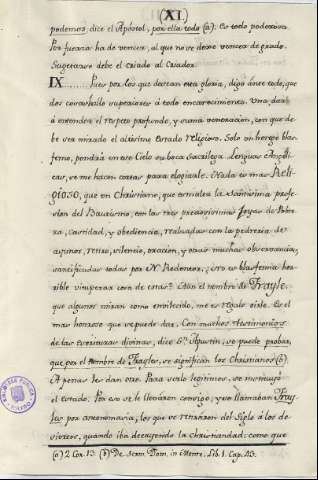 (XI.)
podemos, dice el Apóstol, por ella todo (a). Es todo poderosa.
Por fuerza ha de vencer, al que no se dexe vencer de grado.
Sugetarse debe el criado al Criador.
IX Pues por los que desean esta gloria, digo ánte todo, que
dos cosas hallo superiores á todo encarecimiento. Una, dexar
á entender el respeto profundo, y suma veneracion, con que de-
be ser mirado el altisimo Estado Religioso. Solo un herege blas-
femo, pondria en este Cielo su boca sacrilega. Lenguas Angeli-
cas, se me hacen cortas para elogiarle. Nada es mas Reli-
gioso, que un Christiano, que esmalta la santisima profe-
sion del Bautismo, con las tres preciosisimas joyas de Pobre-
za, Castidad, y obediencia, realzadas con la pedreria de
ayunos, retiro, silencio, oracion, y otras muchas observancias,
santificadas todas por N. Redentor. ¿No es blasfemia ho-
rrible vituperar cosa de estas? Aun el nombre de Frayle,
que algunos miran como envilecido, me es regalo oirle. Es el
mas honroso que se puede dar. Con muchos testimonios
de las Escrituras divinas, dice Sn. Agustin, se puede probar,
que por el nombre de Frayles, se significan los Christianos (b).
Apenas les dan otro. Para serlo legitimos, se instituyó
el estado. Por eso se le llevaron consigo, y se llamaban Fray-
les por antonomasia, los que se retiraron del Siglo á los de-
siertos, quando iba decayendo la christiandad: como que
(a) 2 Cor. 13. (b) De Serm. Dom. in Monte. Lib. 1. Cap. 23.